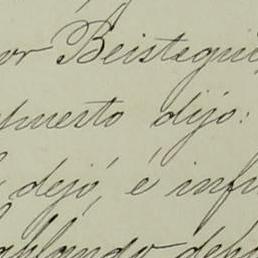 or Beistegui
puesto dijo:
dejó, é infi
ablando debo